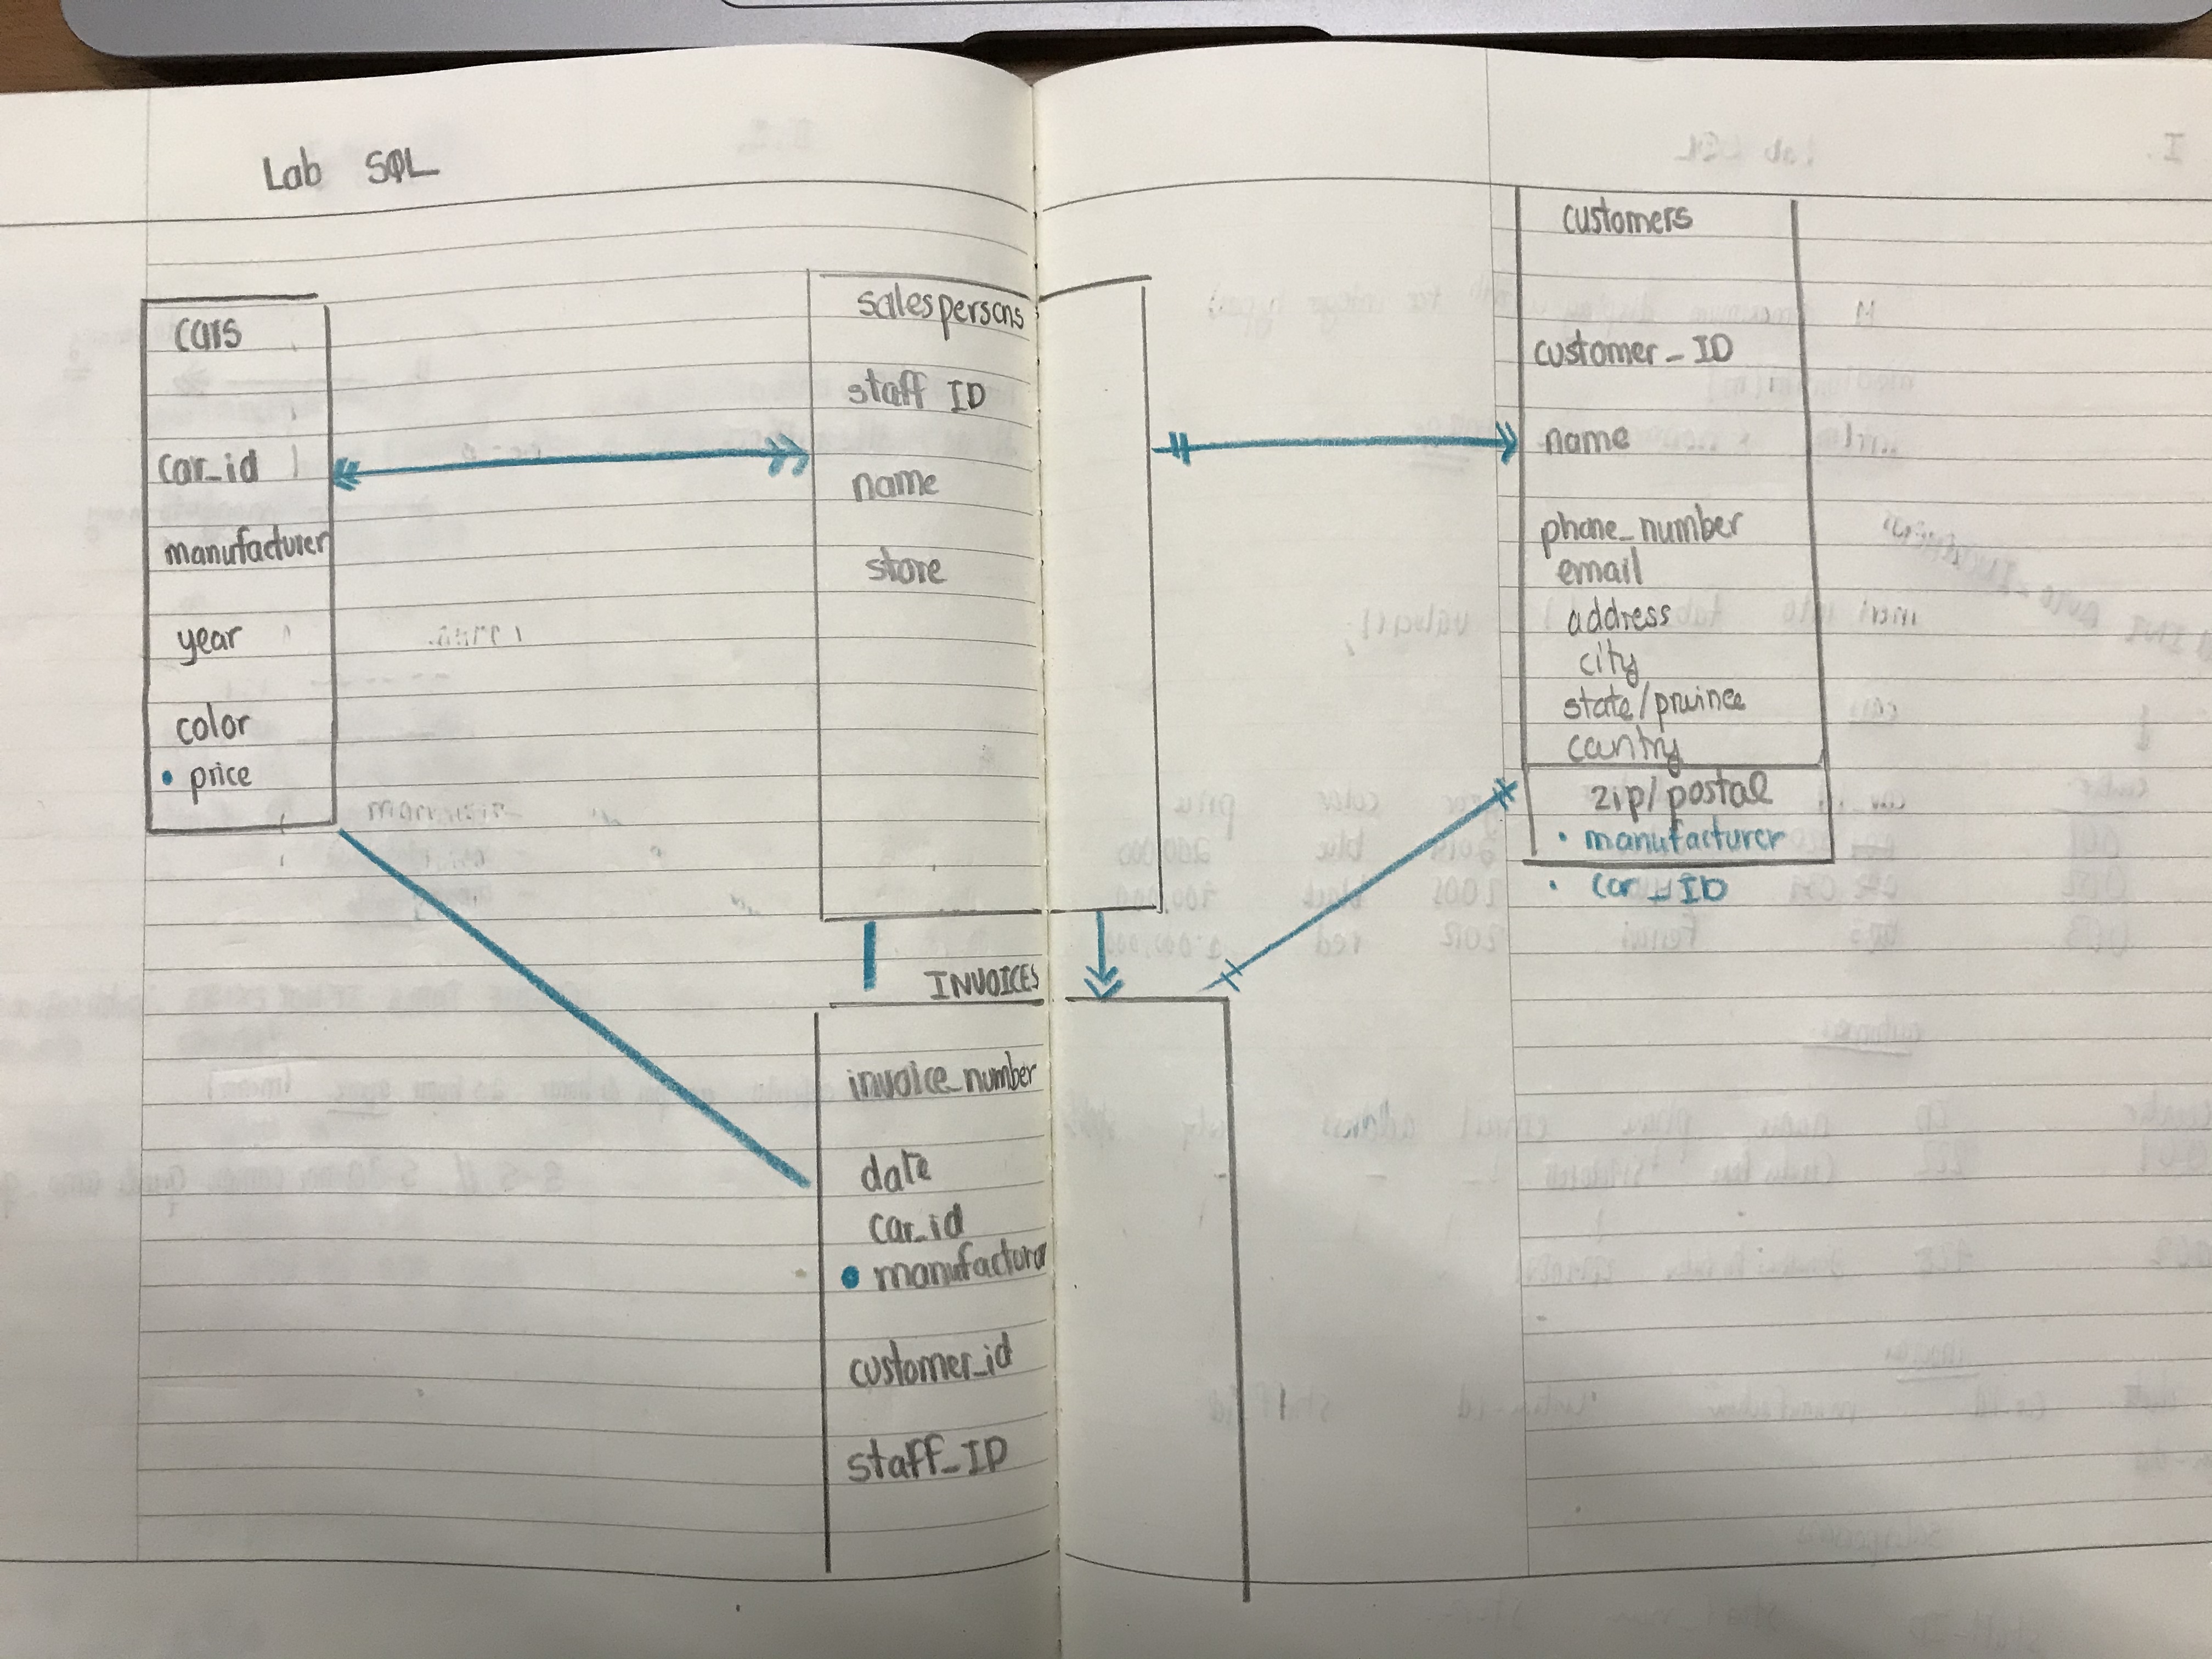 Lab SQL
cars
car_id
manufacturer
year
color
• price
salespersons
staff ID
name
store
customers
customer_ID
name
phone_number
email
address
city
state/prwince
country
zip/postal
• manufacturer
• car_ID
INVOICES
invoice_number
date
car_id
• manufacturer
customer_id
staff_ID